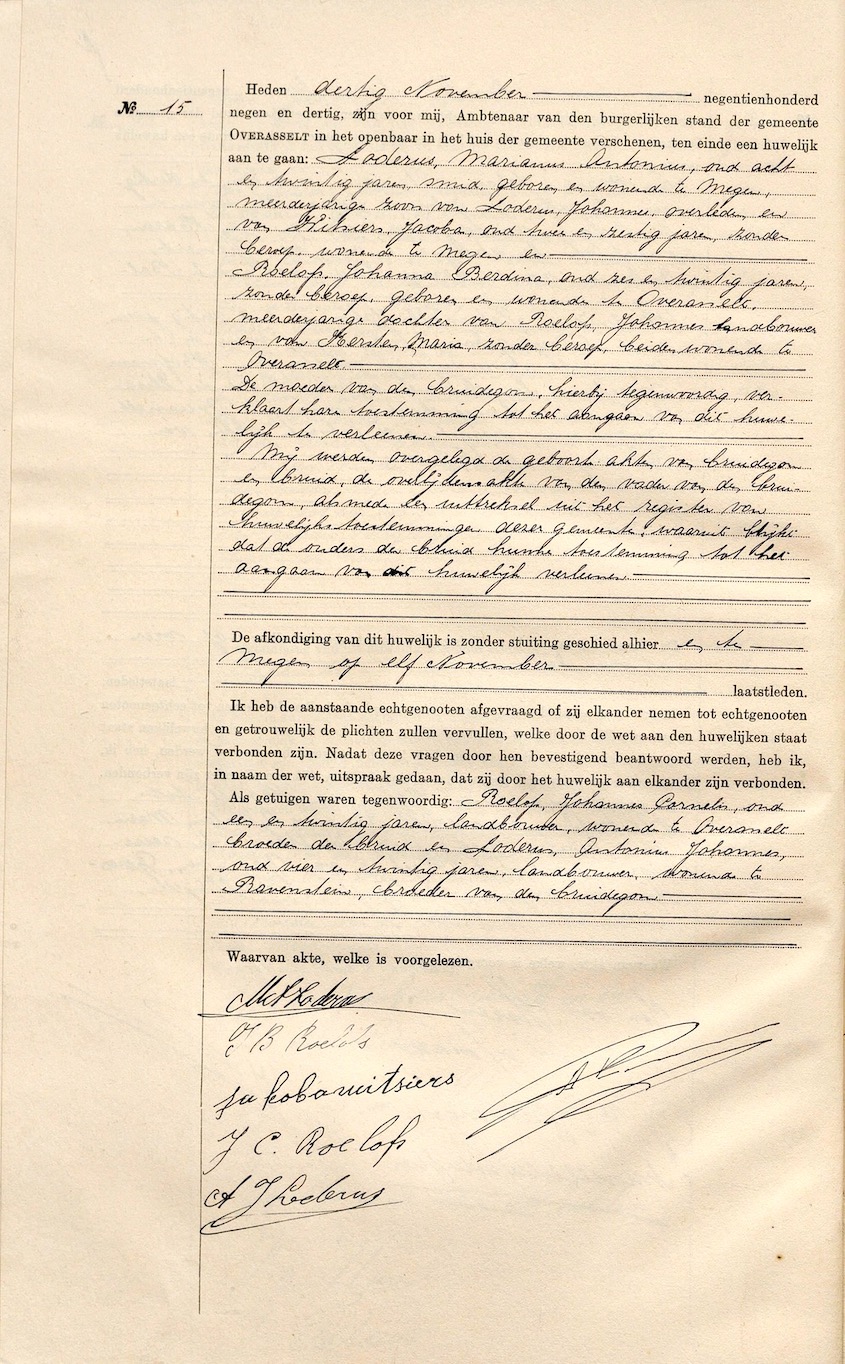 № 15
Heden dertig November negentienhonderd
negen en dertig, zijn voor mij, Ambtenaar van den burgerlijken stand der gemeente
OVERASSELT in het openbaar in het huis der gemeente verschenen, ten einde een huwelijk
aan te gaan: Loderus, Marianus Antonius, oud acht
en twintig jaren, smid, geboren en wonende te Megen,
meerderjarige zoon van Loderus, Johannes, overleden en
van Witsiers, Jacoba, oud twee en zestig jaren, zonder
beroep, wonende te Megen en
Roelofs, Johanna Berdina, oud zes en twintig jaren,
zonder beroep, geboren en wonende te Overasselt,
meerderjarige dochter van Roelofs, Johannes landbouwer
en van Kersten, Maria, zonder beroep, beiden wonende te
Overasselt.
De moeder van den bruidegom, hierbij tegenwoordig, ver-
klaart hare toestemming tot het aangaan van dit huwe-
lijk te verleenen.
Mij werden overgelegd de geboorte akten van bruidegom
en bruid, de overlijdensakte van den vader van den brui-
degom, alsmede een uittreksel uit het register van
huwelijkstoestemmingen dezer gemeente, waaruit blijkt
dat de ouders der bruid hunne toestemming tot het
aangaan van dit huwelijk verleenen
De afkondiging van dit huwelijk is zonder stuiting geschied alhier en te
Megen op elf November
laatstleden.
Ik heb de aanstaande echtgenooten afgevraagd of zij elkander nemen tot echtgenooten
en getrouwelijk de plichten zullen vervullen, welke door de wet aan den huwelijken staat
verbonden zijn. Nadat deze vragen door hen bevestigend beantwoord werden, heb ik,
in naam der wet, uitspraak gedaan, dat zij door het huwelijk aan elkander zijn verbonden.
Als getuigen waren tegenwoordig: Roelofs, Johannes Cornelis, oud
een en twintig jaren, landbouwer, wonende te Overasselt
broeder der bruid en Loderus, Antonius Johannes,
oud vier en twintig jaren, landbouwer, wonende te
Ravenstein, broeder van den bruidegom
Waarvan akte, welke is voorgelezen.
M A Loderus
J B Roelofs
jakoba witsiers
J C. Roelofs
A J Loderus